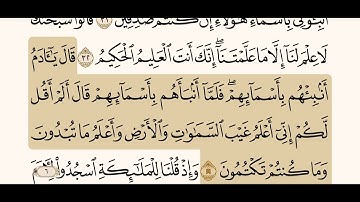 أَنۢبِـُٔونِى بِأَسْمَآءِ هَـٰٓؤُلَآءِ إِن كُنتُمْ صَـٰدِقِينَ ٣١ قَالُوا۟ سُبْحَـٰنَكَ
لَا عِلْمَ لَنَآ إِلَّا مَا عَلَّمْتَنَآ ۖ إِنَّكَ أَنتَ ٱلْعَلِيمُ ٱلْحَكِيمُ ٣٢ قَالَ يَـٰٓـَٔادَمُ
أَنۢبِئْهُم بِأَسْمَآئِهِمْ ۖ فَلَمَّآ أَنۢبَأَهُم بِأَسْمَآئِهِمْ قَالَ أَلَمْ أَقُل
لَّكُمْ إِنِّىٓ أَعْلَمُ غَيْبَ ٱلسَّمَـٰوَٰتِ وَٱلْأَرْضِ وَأَعْلَمُ مَا تُبْدُونَ
وَمَا كُنتُمْ تَكْتُمُونَ وَإِذْ قُلْنَا لِلْمَلَـٰٓئِكَةِ ٱسْجُدُوا۟ ٦